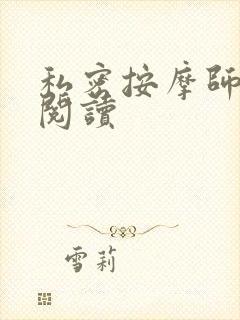 私密按摩師
閱讀
雪莉